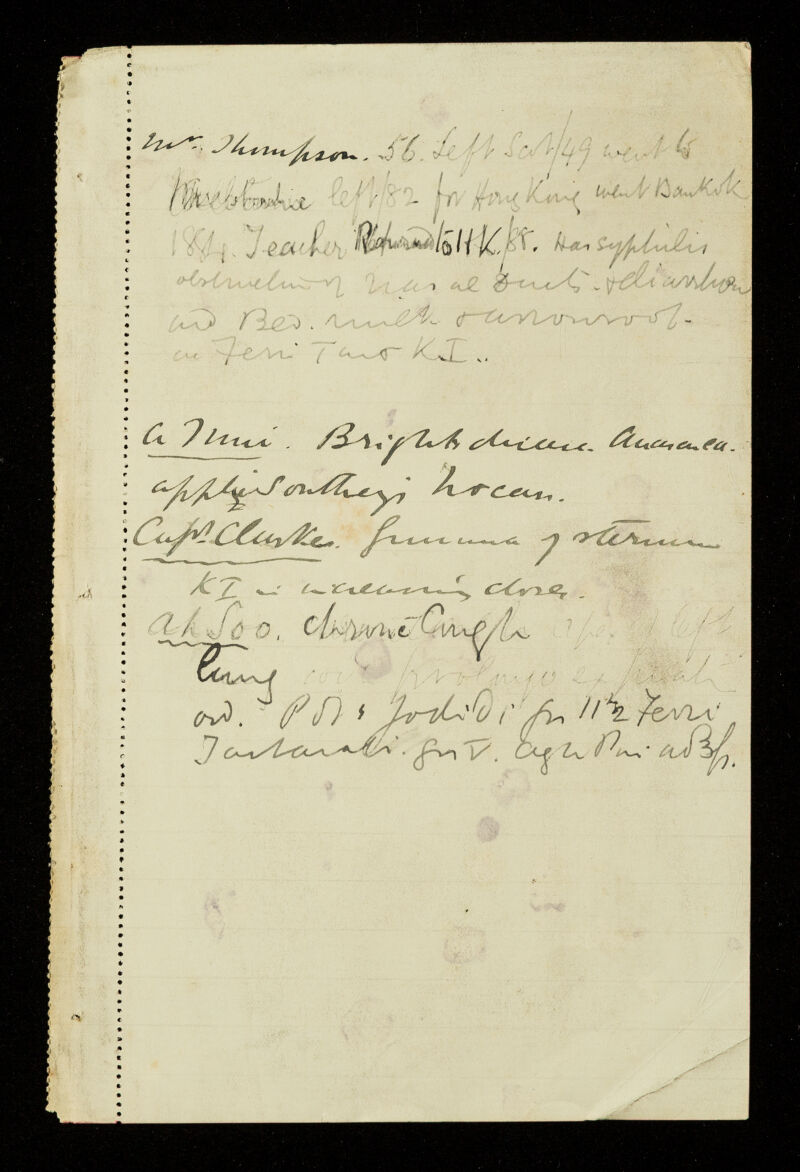 Mr. Thompson. 56. Left Scot/49 went to
left/82 for Hong Kong went Bankok
1884. Teacher Returned to HK/88. Has syphilis
obstruction of nasal ducts & diarrhoea
and Bed. milk & arrowroot.
Ferri Tart & K.I..
Brights disease. Anasarca.
applied Southey's trocars.
Capt. Clarke. Gumma of sternum
KI in increasing doses.
Ah Soo. chronic Cough apex left
lung prolonged expirat
ord. Pot s Jodidi grs 11½ Ferri
Tartarati. grs V. Aq